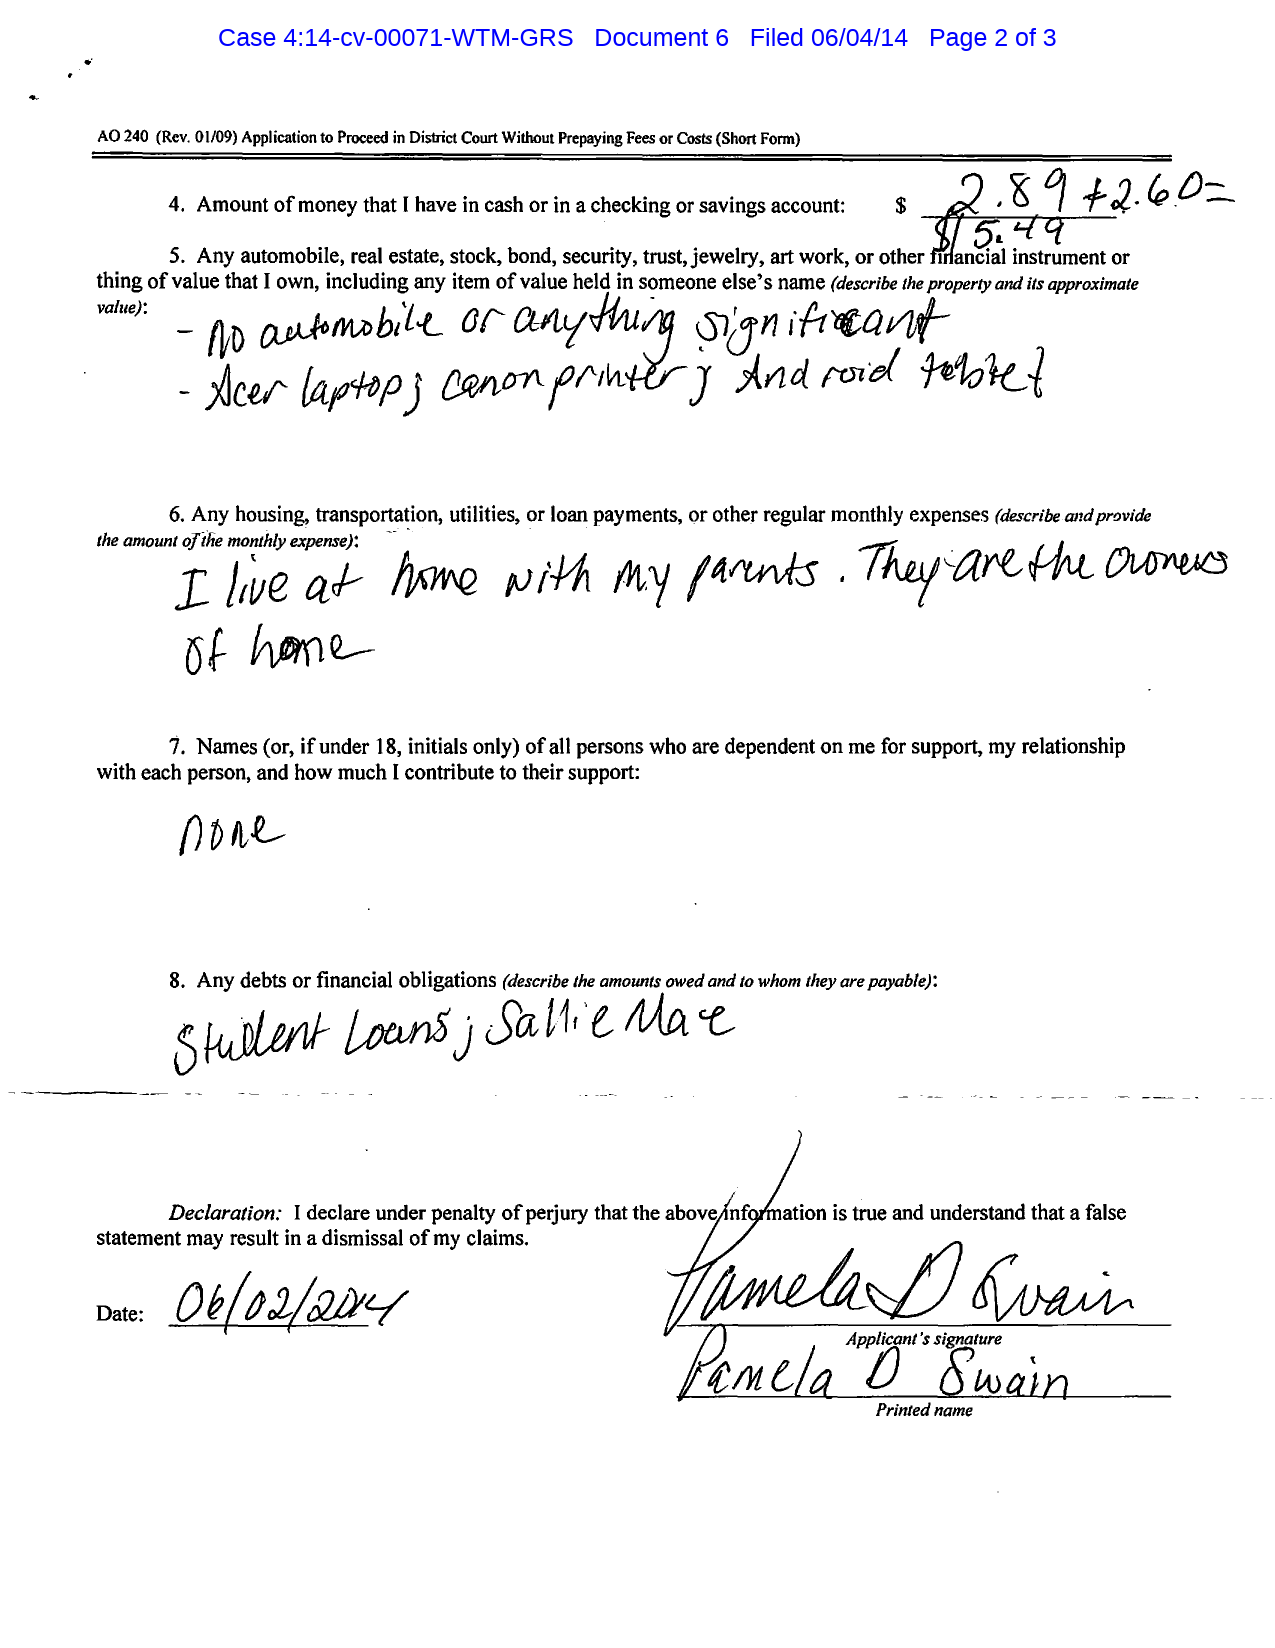 Case 4:14-cv-00071-WTM-GRS Document 6 Filed 06/04/14 Page 2 of 3
AO 240 (Rev. 01/09) Application to Proceed in District Court Without Prepaying Fees or Costs (Short Form)
4. Amount of money that I have in cash or in a checking or savings account: $ 2.89 + 2.60 =
$5.49
5. Any automobile, real estate, stock, bond, security, trust, jewelry, art work, or other financial instrument or
thing of value that I own, including any item of value held in someone else's name (describe the property and its approximate
value):
- No automobile or anything significant
- Acer laptop; canon printer; Android tablet
6. Any housing, transportation, utilities, or loan payments, or other regular monthly expenses (describe and provide
the amount of the monthly expense):
I live at home with my parents. They are the owners
of home
7. Names (or, if under 18, initials only) of all persons who are dependent on me for support, my relationship
with each person, and how much I contribute to their support:
none
8. Any debts or financial obligations (describe the amounts owed and to whom they are payable):
Student Loans; Sallie Mae
Declaration: I declare under penalty of perjury that the above information is true and understand that a false
statement may result in a dismissal of my claims.
Date: 06/02/2014
Pamela D Swain
Applicant's signature
Pamela D Swain
Printed name